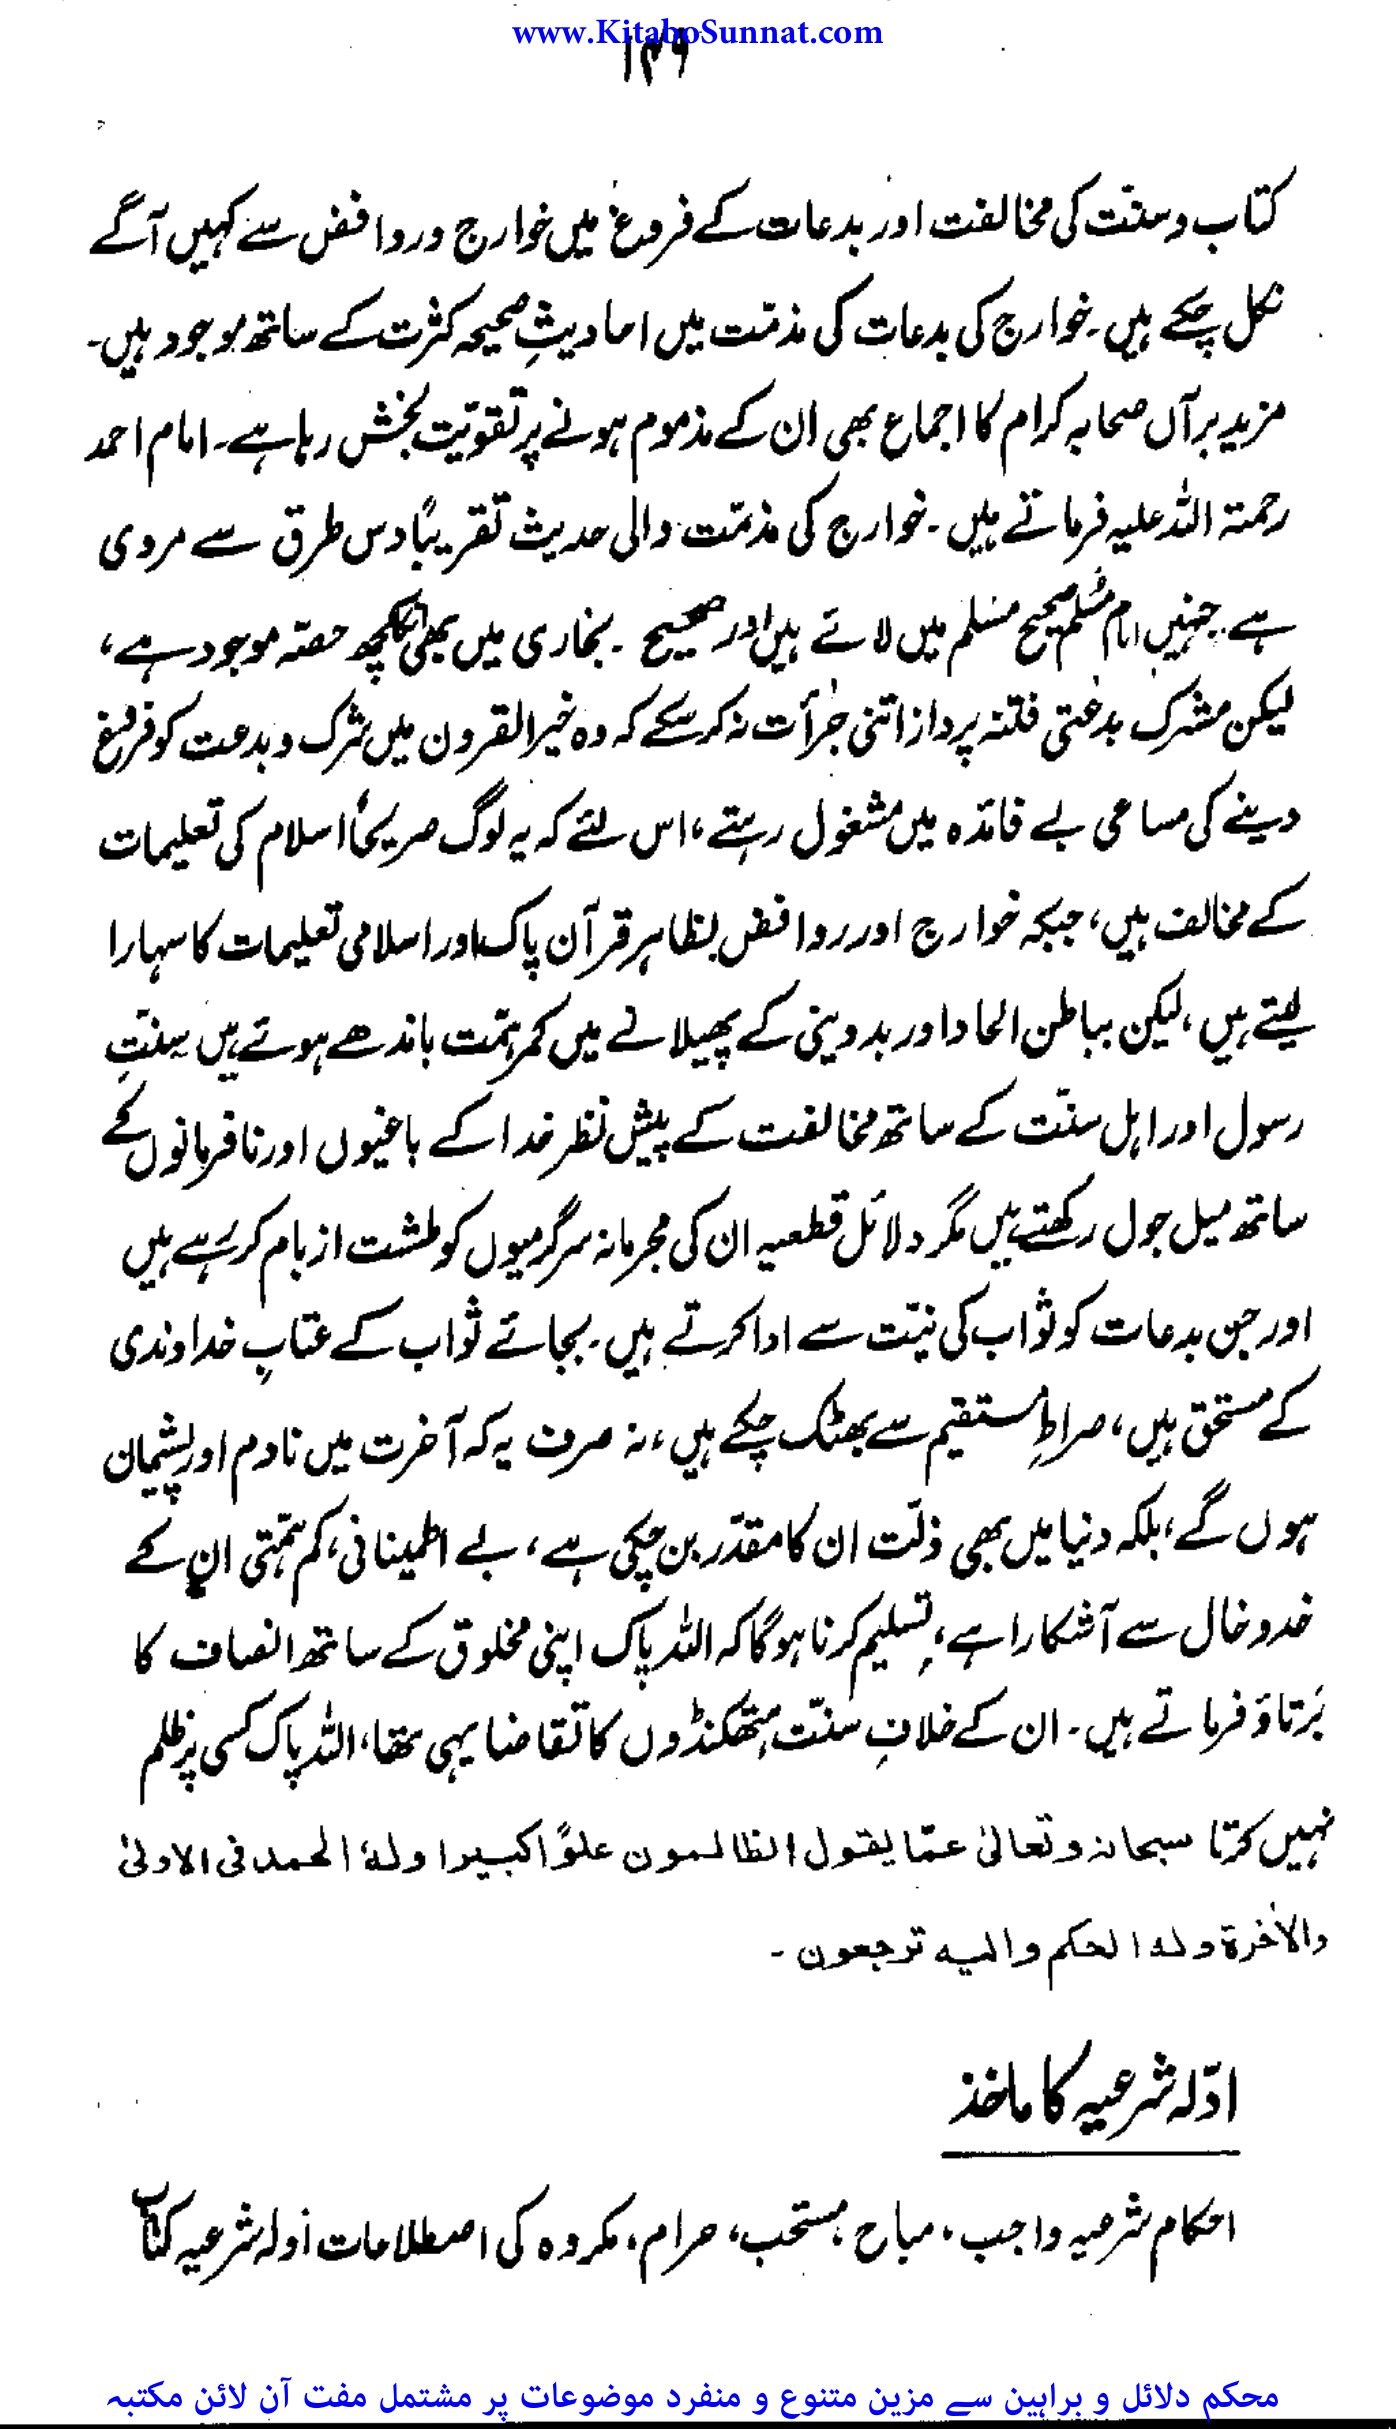 www.KitaboSunnat.com
۱۳۹
کتاب و سنّت کی مخالفت اور بدعات کے فروغ میں خوارج و روافض سے کہیں آگے
نکل چکے ہیں۔ خوارج کی بدعات کی مذمّت میں احادیثِ صحیحہ کثرت کے ساتھ موجود ہیں۔
مزید برآں صحابہ کرام کا اجماع بھی ان کے مذموم ہونے پر تقویّت بخش رہا ہے۔ امام احمد
رحمۃ اللہ علیہ فرماتے ہیں۔ خوارج کی مذمّت والی حدیث تقریباً دس طرق سے مروی
ہے۔ جنہیں امام مسلم صحیح مسلم میں لائے ہیں اور صحیح۔ بخاری میں بھی کچھ حصّہ موجود ہے،
لیکن مشرک بدعتی فتنہ پرداز اتنی جرأت نہ کر سکے کہ وہ خیرالقرون میں شرک و بدعت کو فروغ
دینے کی مساعی بے فائدہ میں مشغول رہتے، اس لئے کہ یہ لوگ صریحاً اسلام کی تعلیمات
کے مخالف ہیں، جبکہ خوارج اور روافض بظاہر قرآن پاک اور اسلامی تعلیمات کا سہارا
لیتے ہیں، لیکن بباطن الحاد اور بد دینی کے پھیلانے میں کمر ہمّت باندھے ہوتے ہیں سنّتِ
رسول اور اہل سنّت کے ساتھ مخالفت کے پیش نظر خدا کے باغیوں اور نافرمانوں کے
ساتھ میل جول رکھتے ہیں مگر دلائل قطعیہ ان کی مجرمانہ سرگرمیوں کو طشت از بام کر رہے ہیں
اور جن بدعات کو ثواب کی نیّت سے ادا کرتے ہیں۔ بجائے ثواب کے عتابِ خداوندی
کے مستحق ہیں، صراطِ مستقیم سے بھٹک چکے ہیں، نہ صرف یہ کہ آخرت میں نادم اور پشیمان
ہوں گے، بلکہ دنیا میں بھی ذلّت ان کا مقدّر بن چکی ہے، بے اطمینانی، کم ہمّتی ان کے
خدوخال سے آشکارا ہے، تسلیم کرنا ہوگا کہ اللہ پاک اپنی مخلوق کے ساتھ انصاف کا
بَرتاؤ فرماتے ہیں۔ ان کے خلافِ سنّت ہتھکنڈوں کا تقاضا یہی تھا، اللہ پاک کسی پر ظلم
نہیں کرتا سبحانہ وتعالیٰ عمّا یقول الظالمون علوًّا کبیرا ولہ الحمد فی الاولیٰ
والاٰخرۃ ولہ الحکم والیہ ترجعون۔
ادّلہ شرعیہ کا ماخذ
احکام شرعیہ واجب، مباح، مستحب، حرام، مکروہ کی اصطلاحات اَولہ شرعیہ کتاب
محکم دلائل و براہین سے مزین متنوع و منفرد موضوعات پر مشتمل مفت آن لائن مکتبہ